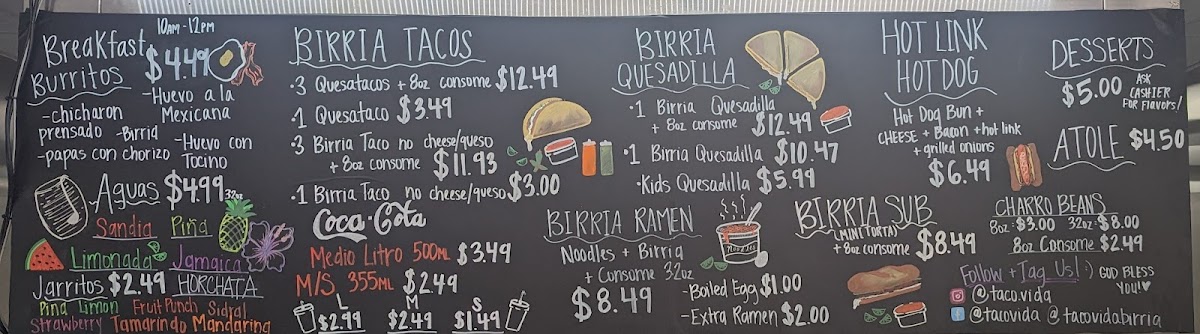 10AM - 12PM
Breakfast
Burritos
$4.49
-chicharon
prensado -Birria
-papas con chorizo
-Huevo a la
Mexicana
-Huevo con
Tocino
Aguas $4.99 32oz
Sandia Piña
Limonada Jamaica
Jarritos $2.49 HORCHATA
Piña Limon Fruit Punch Sidral
Strawberry Tamarindo Mandarina
BIRRIA TACOS
•3 Quesatacos + 8oz consome $12.49
•1 Quesataco $3.49
•3 Birria Taco no cheese/queso
+ 8oz consome $11.93
•1 Birria Taco no cheese/queso $3.00
Coca-Cola
Medio Litro 500ML $3.49
M/S 355ML $2.49
L M S
$2.99 $2.49 $1.49
BIRRIA
QUESADILLA
•1 Birria Quesadilla
+ 8oz consome $12.49
•1 Birria Quesadilla $10.47
•Kids Quesadilla $5.99
BIRRIA RAMEN
Noodles + Birria
+ Consome 32oz
$8.49
NOODLES
-Boiled Egg $1.00
-Extra Ramen $2.00
HOT LINK
HOT DOG
Hot Dog Bun +
CHEESE + Bacon + hot link
+ grilled onions
$6.49
BIRRIA SUB
(MINI TORTA)
+ 8oz consome $8.49
DESSERTS
$5.00 ASK
CASHIER
FOR FLAVORS!
ATOLE $4.50
CHARRO BEANS
8oz-$3.00 32oz-$8.00
8oz Consome $2.49
Follow + Tag Us! :)
GOD BLESS
YOU!♥
@taco.vida
@tacovida @tacovidabirria